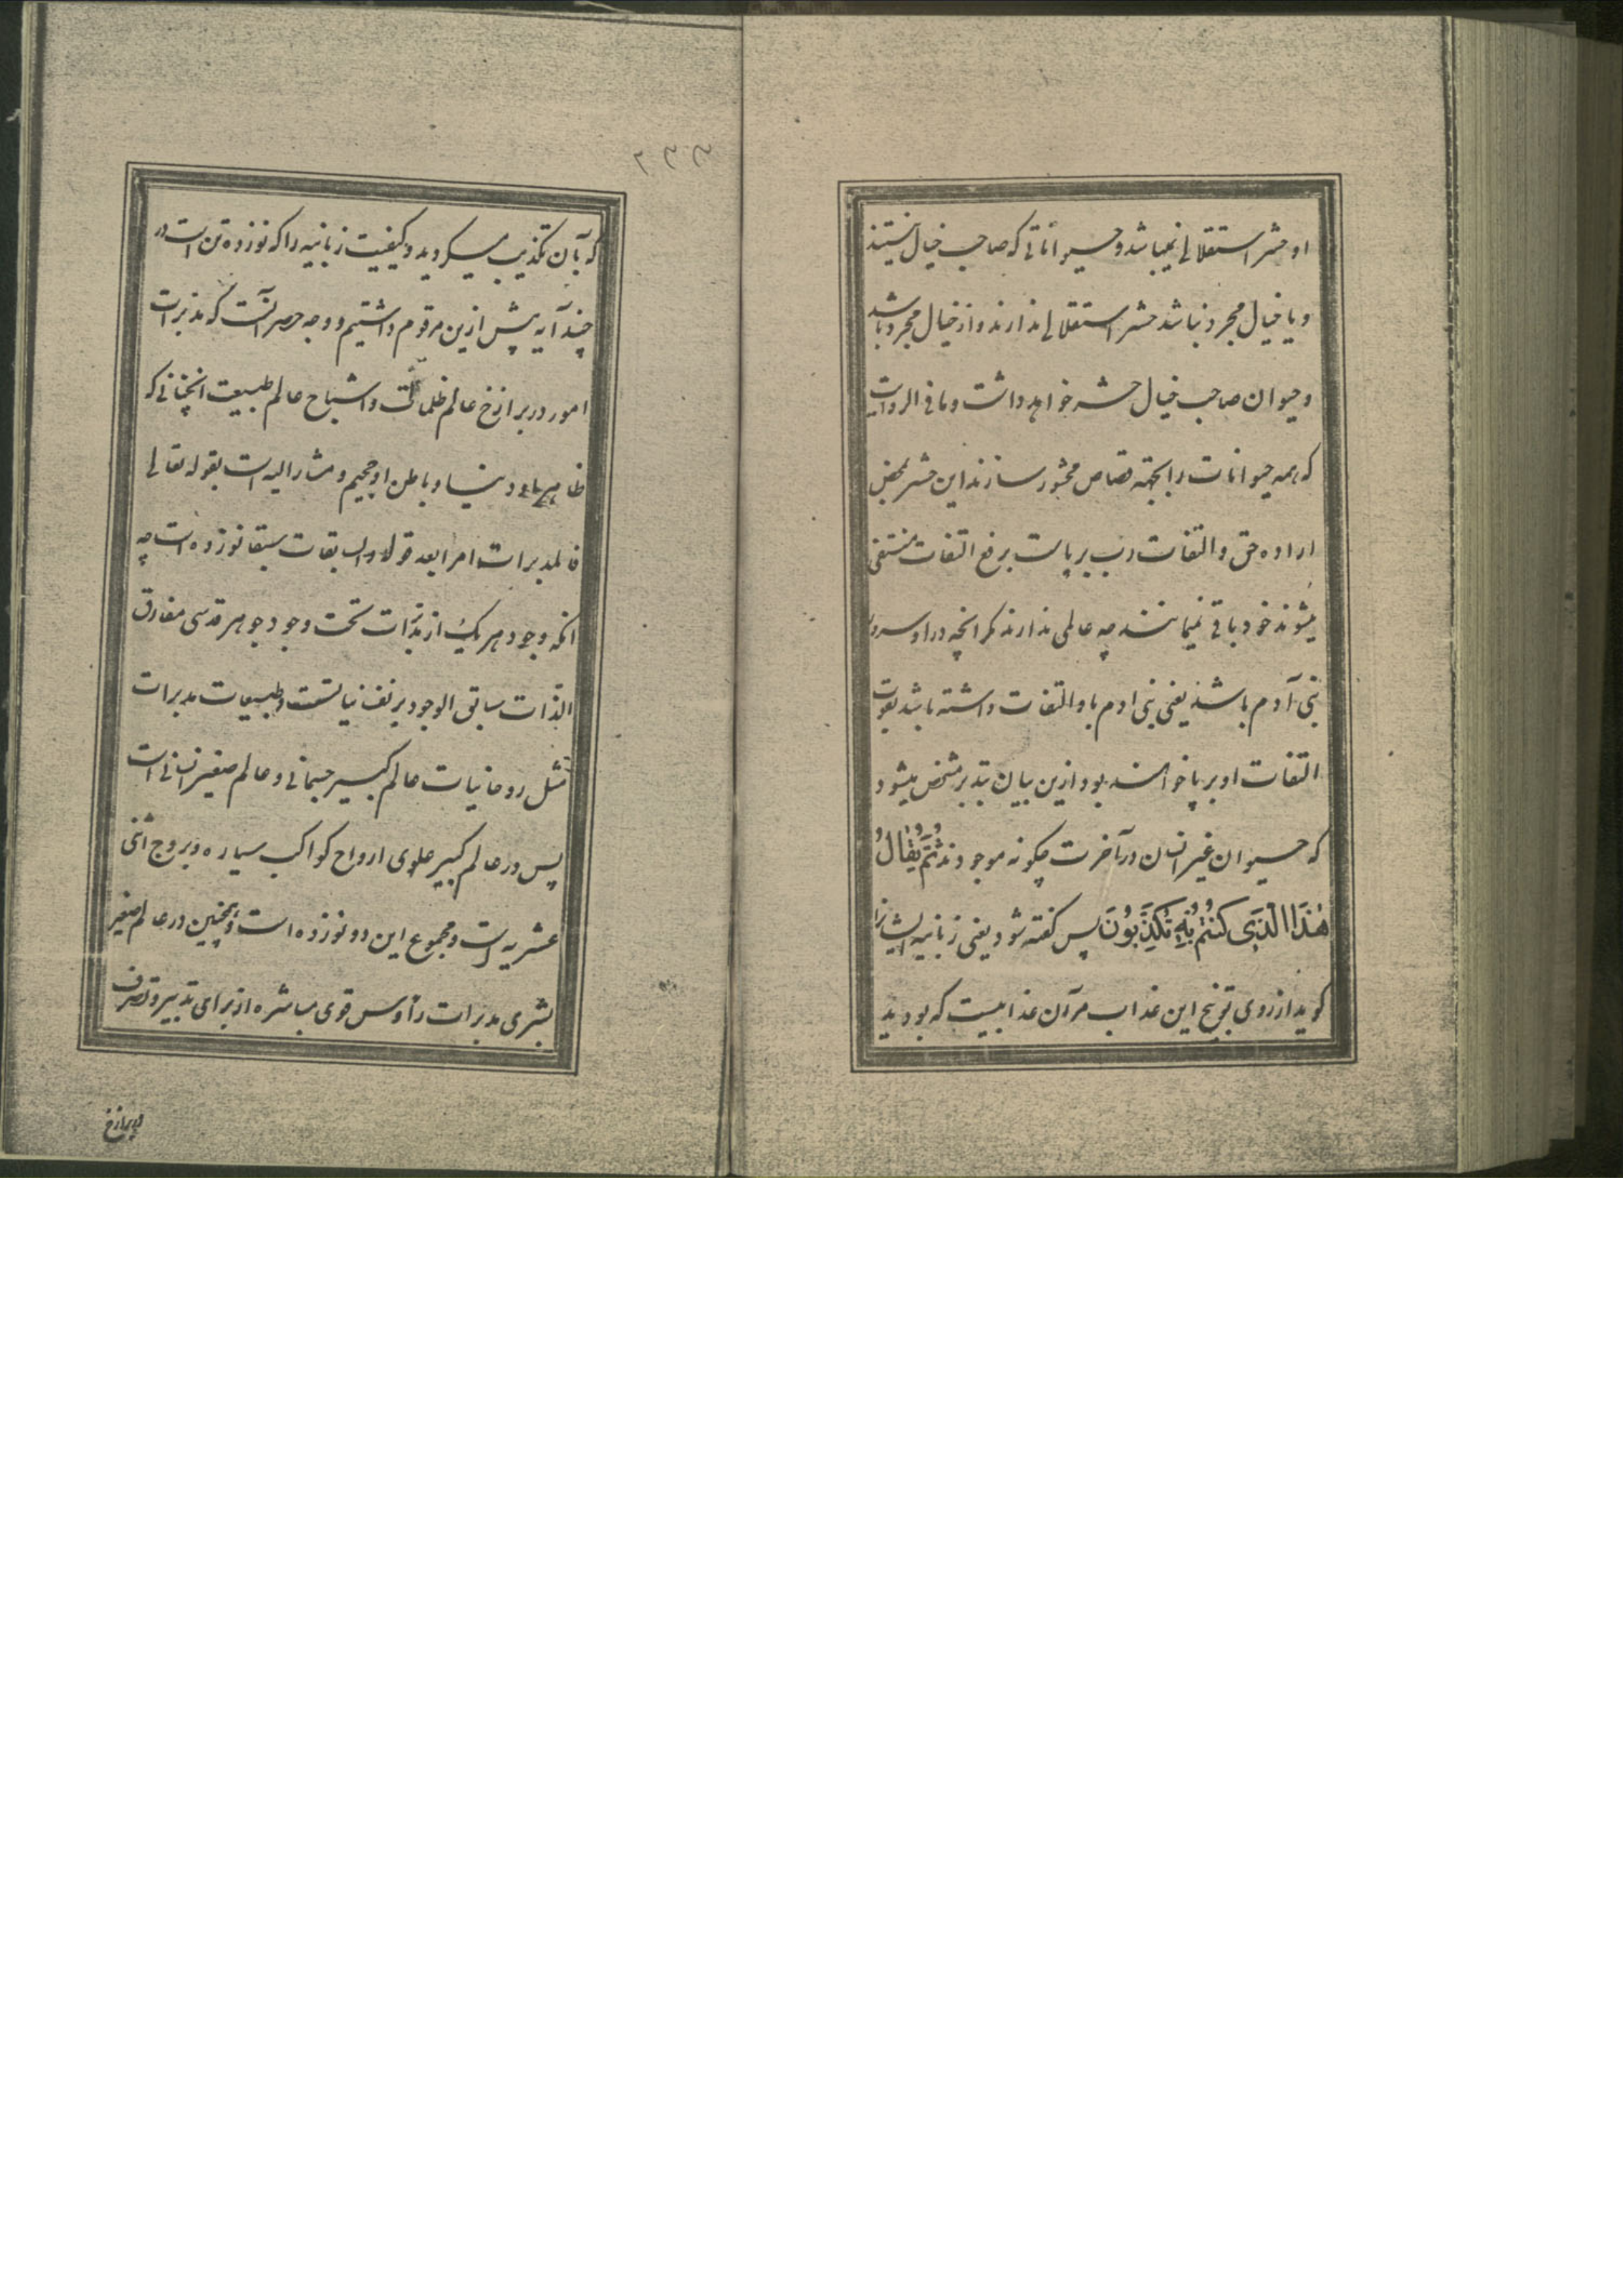 او حشر استقلالی نمیباشد و حیواناتی که صاحب خیال نیستند
و یا خیال مجرد نباشد حشر استقلالی ندارند و از خیال مجرد باشد
و حیوان صاحب خیال حشر خواهد داشت و ما فی الروایت
که همه حیوانات را بجهته قصاص محشور سازند این حشر بمحض
اراده حق و التفات رب بر پاست برفع التفات منتفی
میشوند خود باقی نمیمانند چه عالمی ندارند مگر انچه در او
بنی آدم باشد یعنی بنی ادم باو التفات داشته باشد بقوت
التفات او بر پا خواهند بود ازین بیان بتدبر مشخص میشود
که حیوان غیر انسان در آخرت چگونه موجودند ثُمَّ یُقٰالُ
هٰذَا الَّذِی کُنْتُمْ بِهِ تُکَذِّبُونَ پس گفته شود یعنی زبانیه ایشانرا
گوید از روی توبیخ این عذاب مرآن عذابیست که بودید
۲۳۳
که بآن تکذیب میکردید و کیفیت زبانیه را که نوزده تن است در
چند آیه پیش ازین مرقوم داشتیم و وجه حصر آنست که مدبرات
امور در برازخ عالم ظلمانی و اشباح عالم طبیعت انچنانی که
ظاهر او دنیا و باطن او جحیم و مشار الیه است بقوله تعالی
فالمدبرات امرا بعد قوله و السابقات سبقا نوزده است چه
انکه وجود هر یک از مدبرات تحت وجود جوهر قدسی مفارق
الذات سابق الوجود بر نفسانیاتست و طبیعات مدبرات
مثل روحانیات عالم کبیر جسمانی و عالم صغیر انسانی است
پس در عالم کبیر علوی ارواح کواکب سیاره و بروج اثنی
عشریه است و مجموع این دو نوزده است و همچنین در عالم صغیر
بشری مدبرات رأوس قوی مباشره از برای تدبیر و تصرف
در برازخ